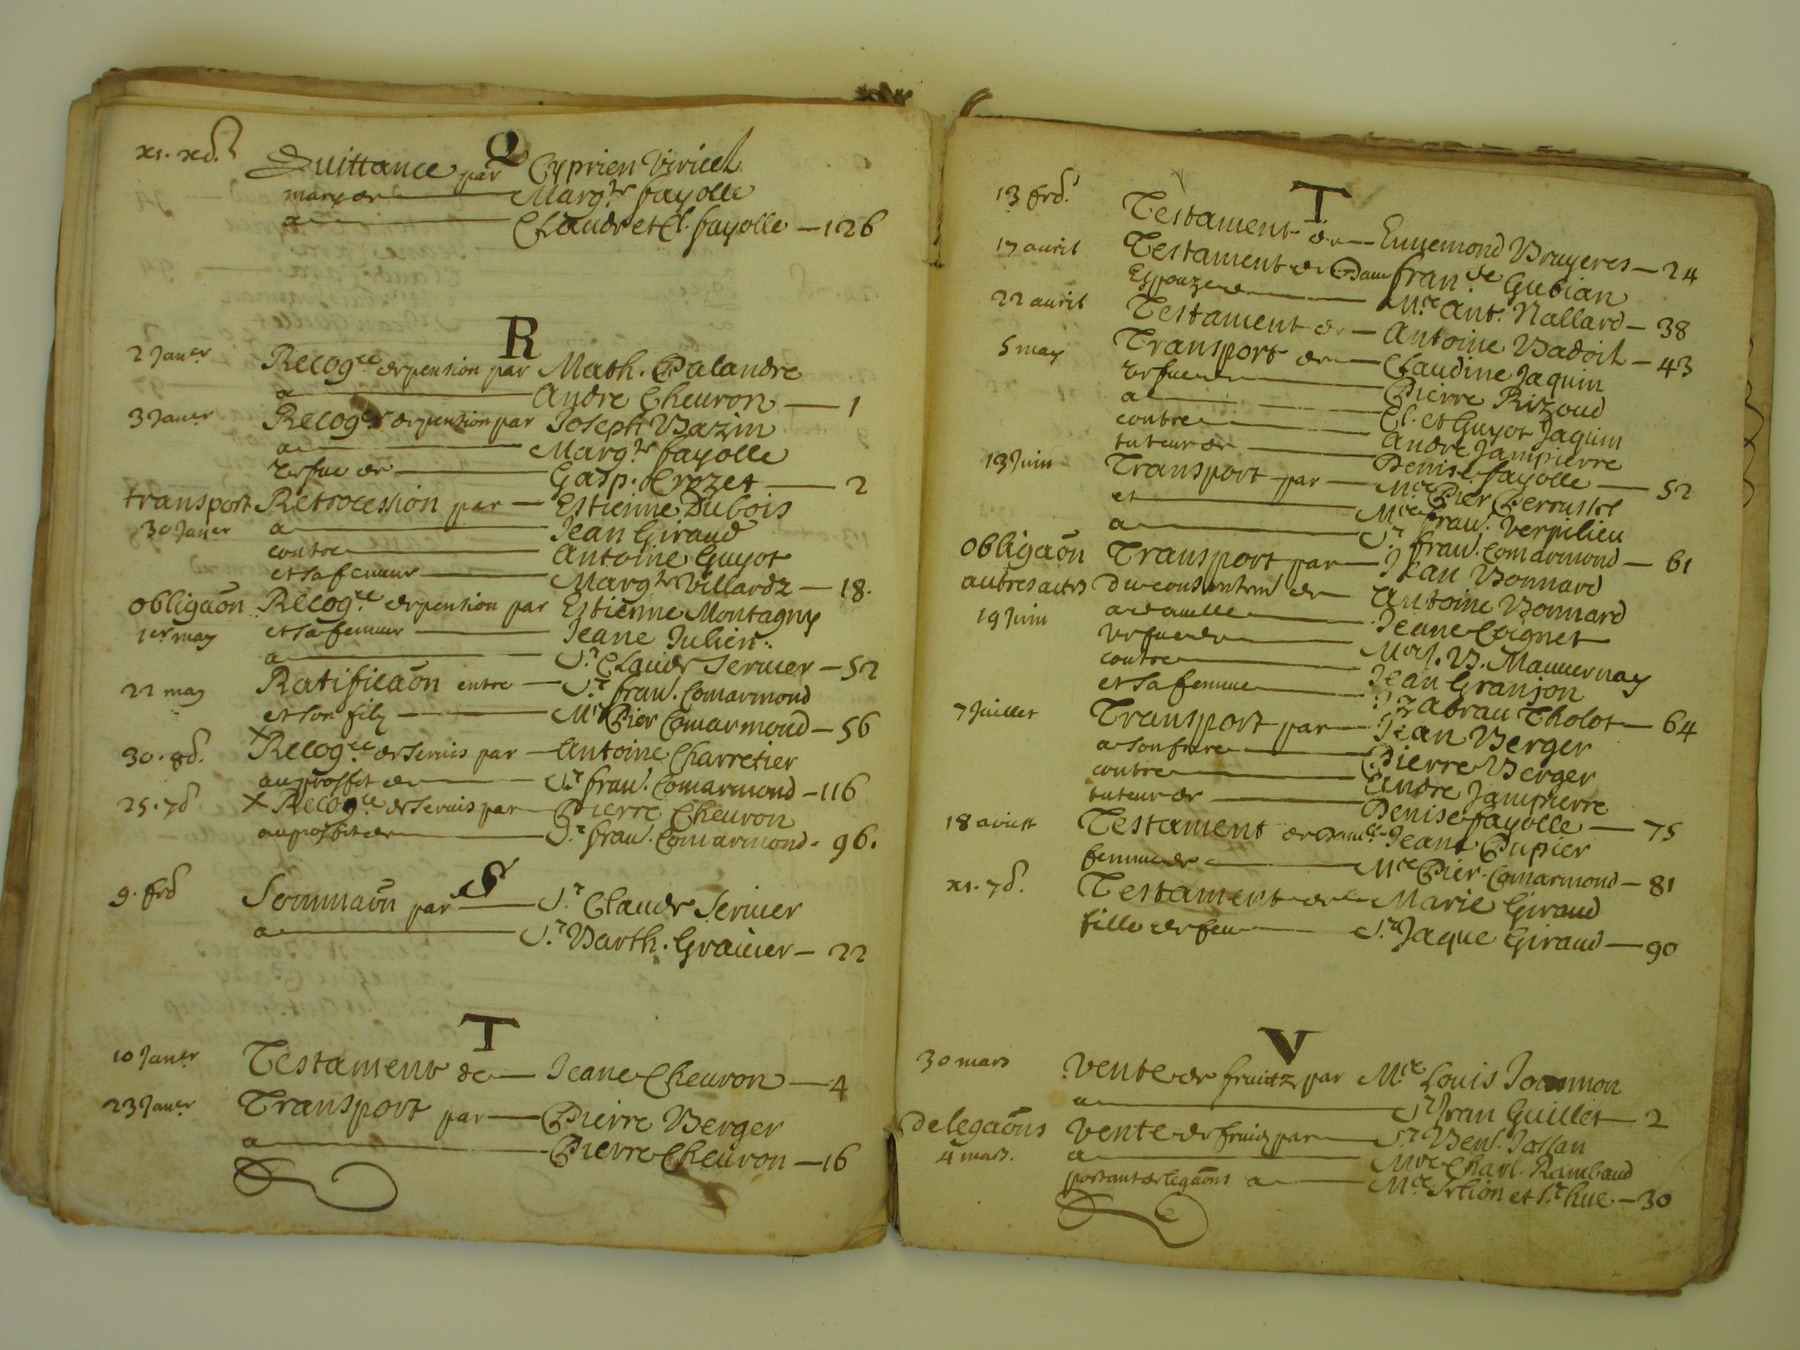 Q
xi. xd. Quittance par Cyprien Viricel
mary de Marg.te fayolle
a Claude et Cl. fayolle 126
R
2 Janer Recog.ce de pension par Math. Palandre
a Andre Cheuron 1
3 Janer Recog.ce de pension par Joseph Bazin
a Marg.te fayolle
vefue de Gasp. Crozet 2
transport Retrocession par Estienne Dubois
30 Janer a Jean Giraud
contre Antoine Guyot
et sa femme Marg.te Villardz 18.
obligaōn Recog.ce de pension par Estienne Montagny
1er may et sa femme Jeane Julien
a S.r Claude Seruier 52
22 may Ratificaōn entre S.r fran. Comarmond
et son filz M.re Pier Comarmond 56
30. 8d. x Recog.ce de seruis par Antoine Charretier
au proffit de S.r fran. Comarmond 116
25. 7d. x Recog.ce de seruis par Pierre Cheuron
au proffit de S.r fran. Comarmond 96.
S
9. frd Sommaōn par S.r Claude Seruier
a S.r Barth. Granier 22
T
10 Janer Testament de Jeane Cheuron 4
23 Janer Transport par Pierre Berger
a Pierre Cheuron 16
T
13 frd. Testament de Ennemond Bruyeres 24
17 auril Testament de Dam fran.de Gubian
Espouze de M.re Ant. Nallard 38
22 auril Testament de Antoine Badoil 43
5 may Transport de Claudine Jaquin
vefue de Pierre Rizoud
a Cl. et Guyot Jaquin
contre Andre Jampierre
tuteur de Denise fayolle 52
13 Juin Transport par M.re Pier
et M.re fran. Verpilieu
a S.r fran. Comarmond 61
obligaōn Transport par Jean Bonnard
autres actes du consentem.t de Antoine Bonnard
19 Juin a Jeane Coignet
vefue de B. Mauuernay
contre Jean Granjon
et sa femme Izabeau Tholot 64
7 Juillet Transport par Jean Berger
a son frere Pierre Berger
contre Andre Jampierre
tuteur de Denise fayolle 75
18 aoust Testament de Jeane Dupier
femme de M.re Pier Comarmond 81
xi. 7d. Testament de Marie Giraud
fille de feu S.r Jaque Giraud 90
V
30 mars Vente de fruitz par M.re Louis
a S.r Jean Guillet 2
delegaōns Vente de fruitz par S.r Ben. Jossan
4 mars. a M.re Charl. Rambaud
portant delegaōns a M.re et S.r hue 30